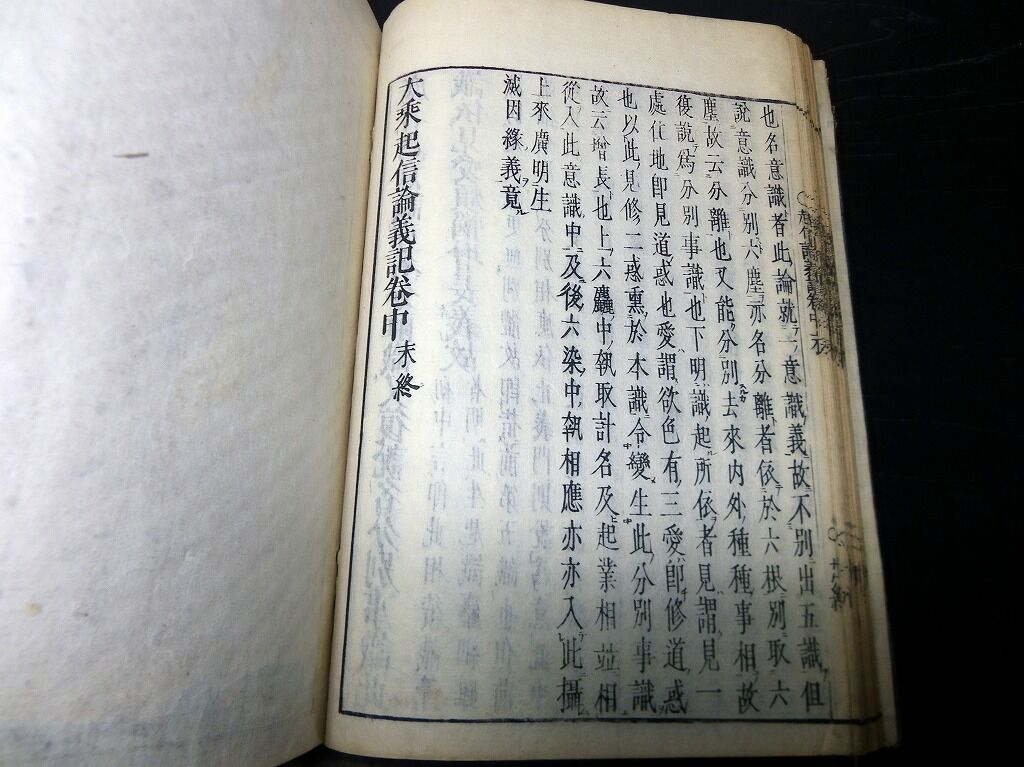 也名意識者此論就一意識義故不別出五識但
說意識分別六塵亦名分離者依於六根別取六
塵故云分離也又能分別去來內外種種事相故
復說爲分別事識也下明識起所依者見謂見一
處住地卽見道惑也愛謂欲色有三愛卽修道惑
也以此見修二惑熏於本識令變生此分別事識
故云增長也上六麤中執取計名及起業相並相
從入此意識中及後六染中執相應亦亦入此攝
上來廣明生
滅因緣義竟
大乘起信論義記卷中 末終